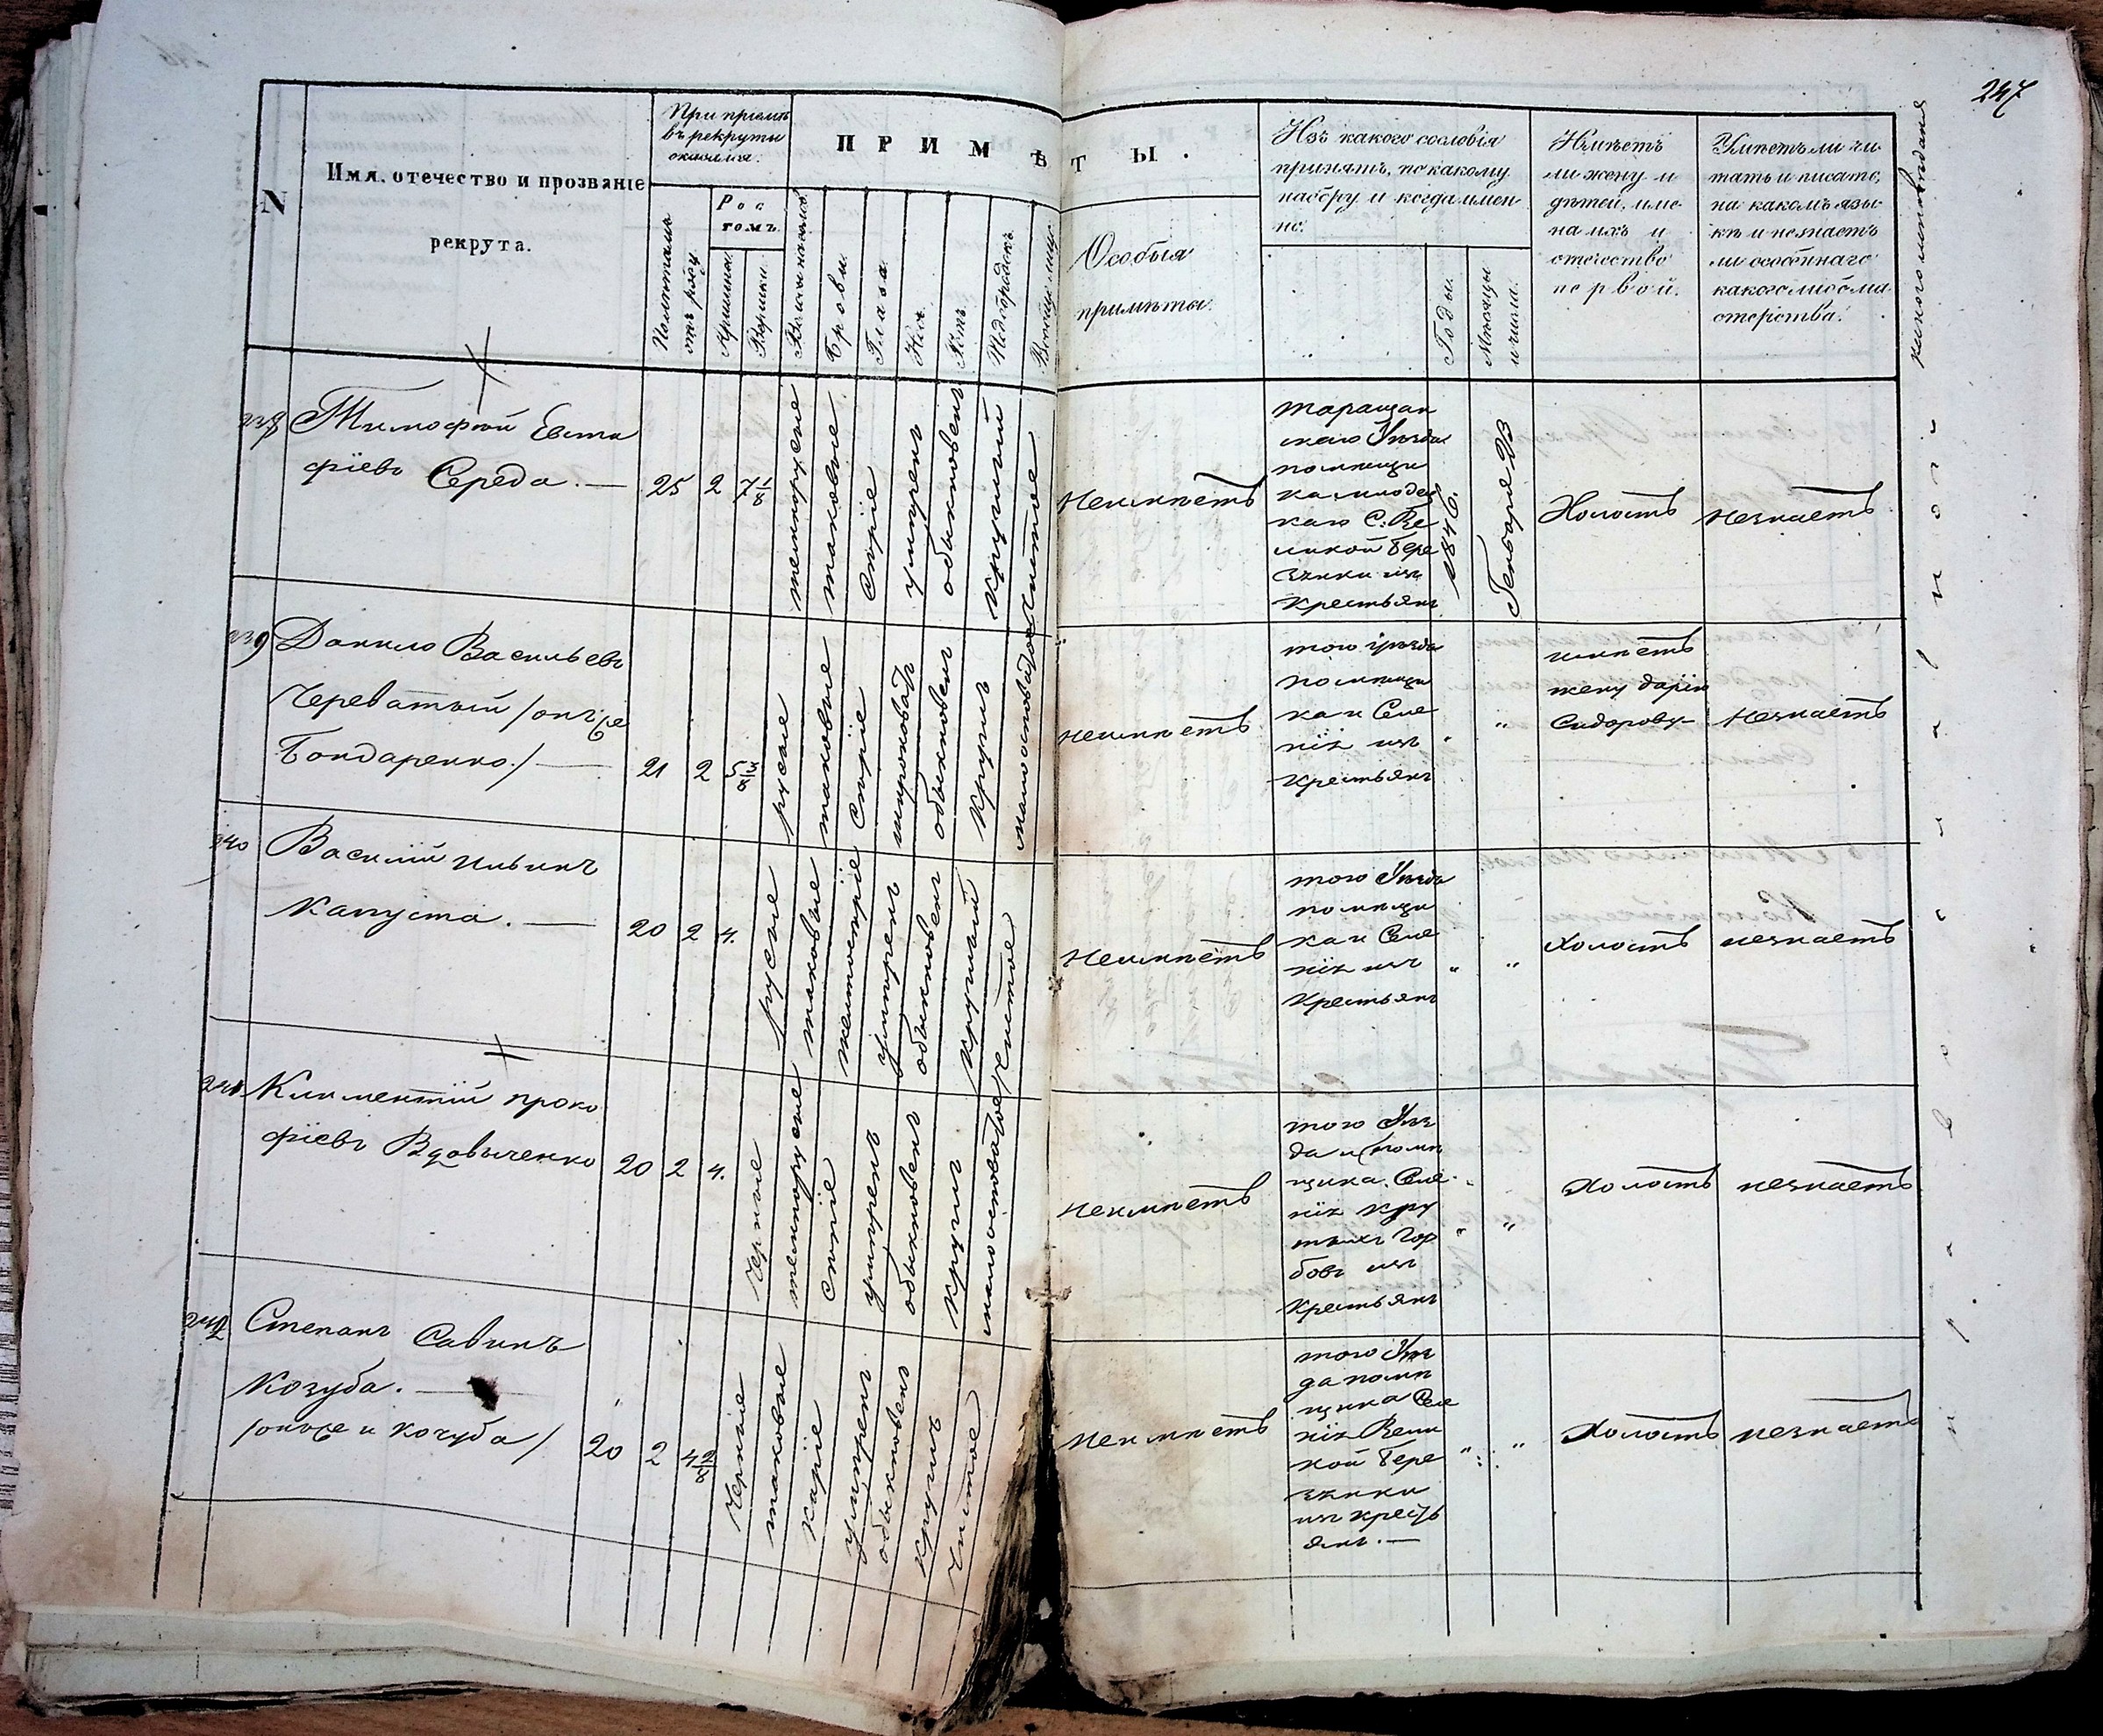 247
N
Имя, отечество и прозваніе
рекрута.
При пріемѣ
въ рекруты
оказался.
Полѣтамъ
отъ роду.
Рос
томъ.
Аршины.
Вершки.
ПРИМѢТЫ.
Волосы на головѣ
Брови.
Глаза.
Носъ.
Ротъ.
Подбородокъ.
Вообще лице.
Особыя
примѣты.
Изъ какого сословія
принятъ, по какому
набору и когда имен-
но.
Годы.
Мѣсяцы
и числа.
Имѣетъ
ли жену и
дѣтей, име-
на ихъ и
отечество
первой.
Умѣетъ ли чи-
тать и писать,
на какомъ язы-
кѣ и незнаетъ
ли особеннаго
какого либо ма
стерства.
какого исповѣданія
православнаго
238
Тимофей Евста
фіевъ Середа. —
25
2
7 1/8
темнорусые
таковые
сѣрые
умѣренъ
обыкновенъ
круглый
Чистое
Неимѣетъ
таращан
скаго Уѣзда
помѣщи
ка
каго С. Ве
ликой Бере
зянки изъ
Крестьянъ
1846.
Генваря 23
Холостъ
незнаетъ
239
Данило Васильевъ
Череватый /онъ же
Бондаренко./ —
21
2
5 3/8
русые
таковые
сѣрые
широковатъ
обыкновенъ
круглъ
малосповатое
неимѣетъ
того уѣзда
помѣщи
ка и Селе
нія изъ
Крестьянъ
"
"
имѣетъ
жену Дарію
Сидорову
Незнаетъ
240
Василій Ильинъ
Капуста. —
20
2
4.
русые
таковые
желтосѣрые
умѣренъ
обыкновенъ
круглый
Чистое
Неимѣетъ
того Уѣзда
помѣщи
ка и Селе
нія изъ
Крестьянъ
"
"
холостъ
незнаетъ
241
Климентій Проко
фіевъ Вдовыченко
20
2
4.
Черные
темнорусые
сѣрые
умѣренъ
обыкновенъ
круглъ
малосповатое
Неимѣетъ
того Уѣз
да и помѣ
щика. Селе-
нія Кру
тыхъ Гор
бовъ изъ
Крестьянъ
"
"
Холостъ
незнаетъ
242
Степанъ Савинъ
Козуба. —
/онъ же и Кочуба/
20
2
4 2/8
Черные
таковые
каріе
умѣренъ
обыкновенъ
круглъ
Чистое
Неимѣетъ
того Уѣз
да помѣ
щика Селе
нія Вели
кой Бере
зянки
изъ крестъ
янъ. —
"
"
Холостъ
незнаетъ